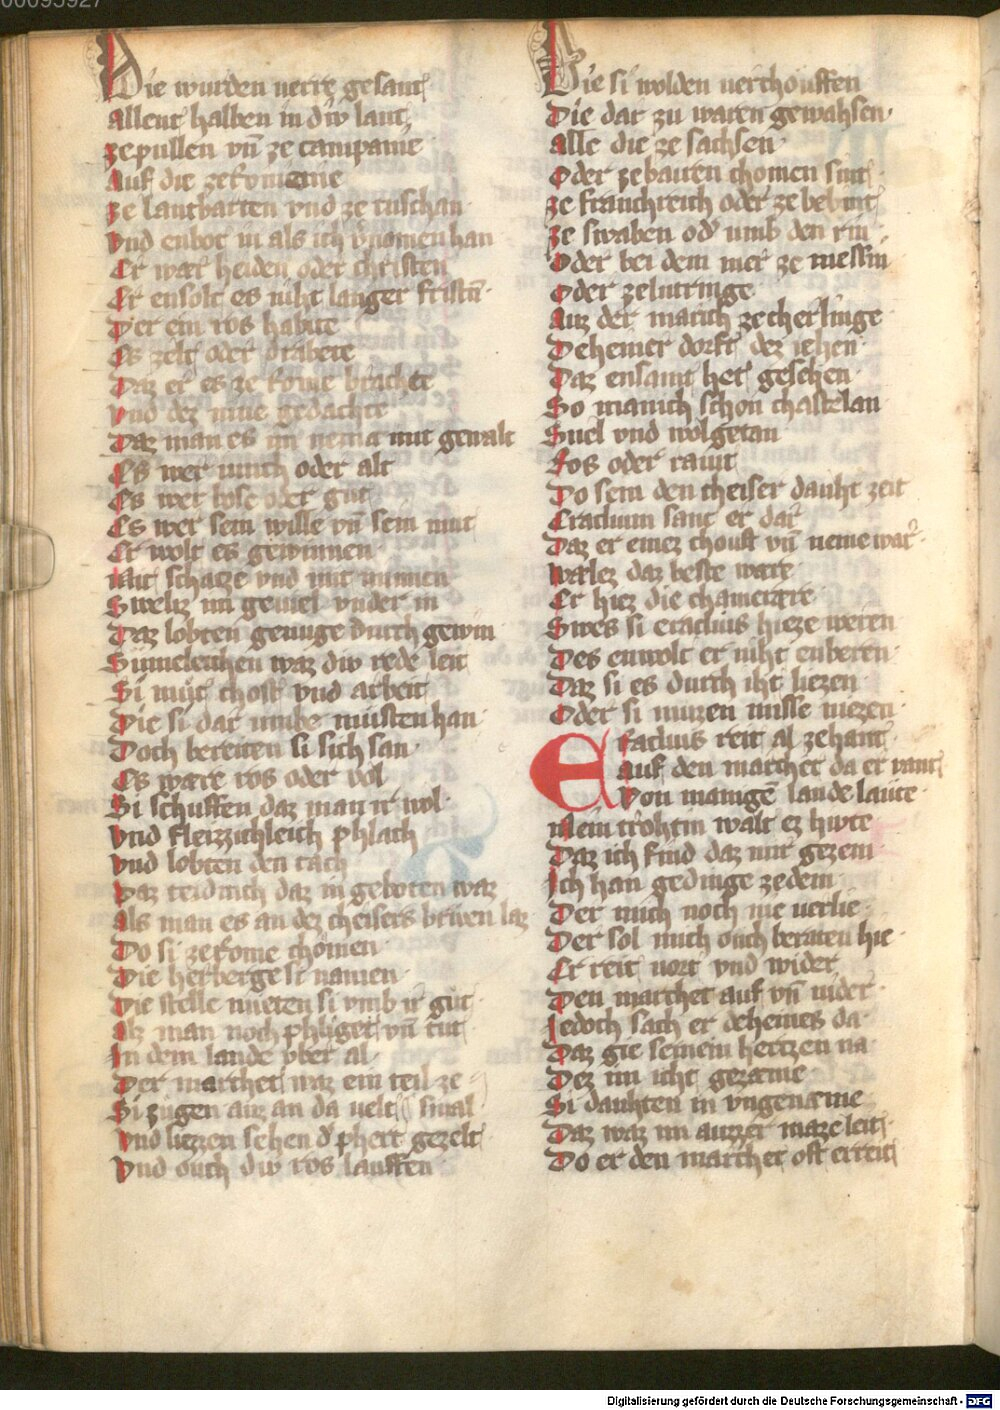 00095927
Die wurden verre gesant
allent halben in div lant
ze pullen vn̄ ze campanie
Auf die ze romanie
ze lantbarten vnd ze tuschan
vnd enbot in als ich vnomen han
Er wær heiden oder christen
Er ensolt es niht langer fristn̄
Der ein ros habite
Es zelt oder drabete
Daz er es ze rome bræchte
vnd dez nine gedachte
Daz man es im neme mit gewalt
Es wer iunch oder alt
Es wer bose oder gut
Es wer sein wille vn̄ sein mut
Er wolt es gewinnen
Mit schatze vnd mit minnen
Swelız im geviel vnder in
Daz lobten genuge durch gewin
Sumelichen waz div rede leit
Si mut chost vnd arbeit
Die si dar umbe musten han
Doch bereiten si sich san
Es wære ros oder vol
Si schuffen daz man ir wol
vnd fleizzichleich phlach
vnd lobten den tach
Daz teidinch daz in geboten waz
Als man es an dez cheisers briven laz
Do si ze rome chomen
Die herberge si namen
Die stelle mieten si vmb ir gut
Alz man noch phliget vn̄ tut
In dem lande vber al
Der marchet waz ein teil ze smal
Si zugen auz an da velt
Vnd liezzen sehen d' phert gezelt
Vnd ouch div ros lauffen
Die si wolden verchouffen
Die dar zu waren gewahsen
alle die ze sachsen
Oder ze baiern chomen sint
ze franchreich oder ze bebint
ze swaben od' umb den rin
Oder bei dem mer ze messin
Oder ze lutringe
auz der march ze cherlinge
Dehemer dorft dez iehen
Daz ensamt het gesehen
So manich schon chastelan
Snel vnd wolgetan
ros oder ravit
Do sein den cheiser dauht zeit
Eraclium sant er dar
Daz er einez chouft vn̄ neme war
welez daz beste wære
Er hiez die chamerære
Swes si eraclius hieze weren
Des enwolt er niht enberen
Daz si es durch iht liezen
Oder si muzen misse niezen
Eraclius reit al zehant
auf den marchet da er vant
Von manigē lande laute
Mein trohtin walt ez hivte
Daz ich find daz mir gezem
Ich han gedinge ze dem
Der mich noch nie verlie
Der sol mich ouch beraten hie
Er reit vort vnd wider
Den marchet auf vn̄ nider
Iedoch sach er dehemes da
Daz gie seinem hertzen na
Dez im icht gezæme
Si dauhten in vngenæme
Daz waz im auzzer maze leit
Do er den marchet oft erreit
Digitalisierung gefördert durch die Deutsche Forschungsgemeinschaft - DFG